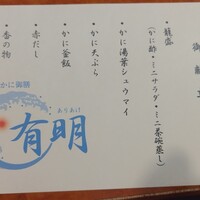 御献立
・籠盛
(かに酢・ミニサラダ・ミニ茶碗蒸し)
・かに湯葉シュウマイ
・かに天ぷら
・かに釜飯
・赤だし
・香の物
かに御膳
ありあけ
有明